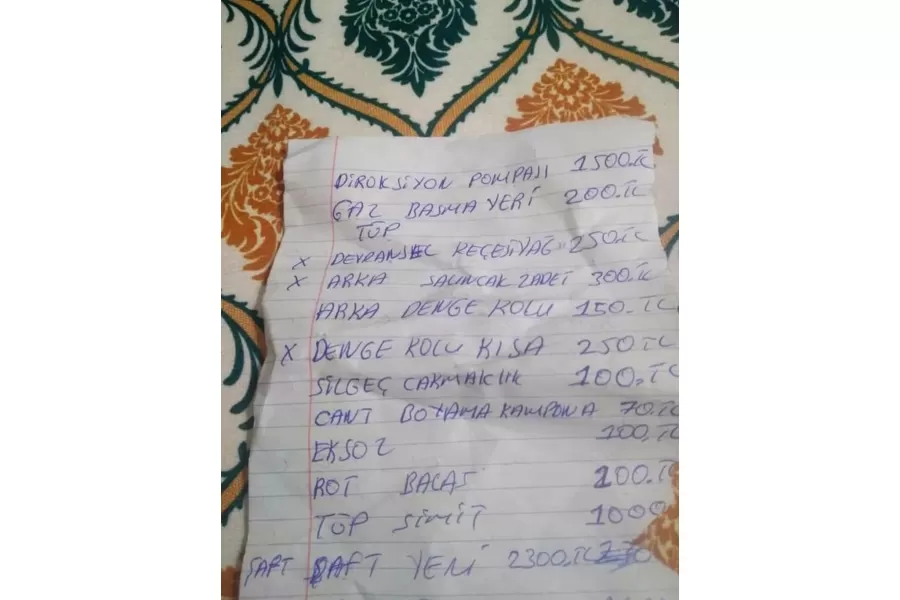 DİROKSİYON POMPASI 1500.TL
GAZ BASMA YERİ 200.TL
TÜP
X DEVRANSEL REÇESİYAĞ 250.TL
X ARKA SALINCAK 2 ADET 300.TL
ARKA DENGE KOLU 150.TL
X DENGE KOLU KISA 250 TL
SİLGEÇ CAKMAKLIK 100.TL
CANT BOYAMA KAMPONA 70.TL
EKSOZ 100.TL
ROT BALAS 100.TL
TÜP SİMİT 1000
ŞAFT ŞAFT YENİ 2300.TL